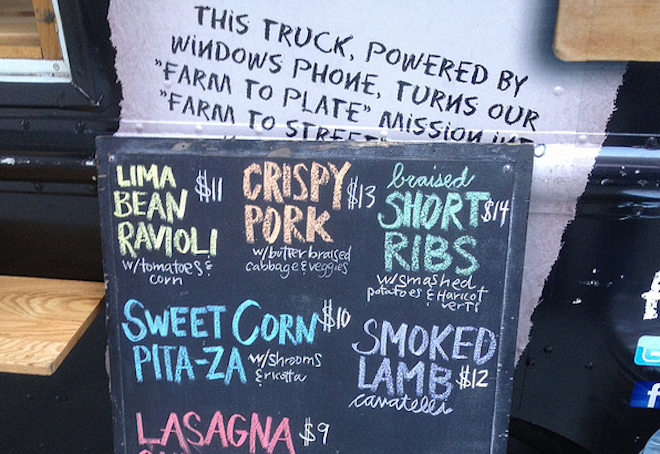 THIS TRUCK, POWERED BY
WINDOWS PHONE, TURNS OUR
"FARM TO PLATE" MISSION
"FARM TO STREET
LIMA
BEAN
RAVIOLI
$11
w/tomatoes &
corn
CRISPY
PORK
$13
w/butter braised
cabbage & veggies
braised
SHORT
RIBS
$14
w/smashed
potatoes & Haricot
verti
SWEET CORN $10
PITA-ZA w/shrooms
& ricotta
SMOKED
LAMB $12
cavatelli
LASAGNA $9
f